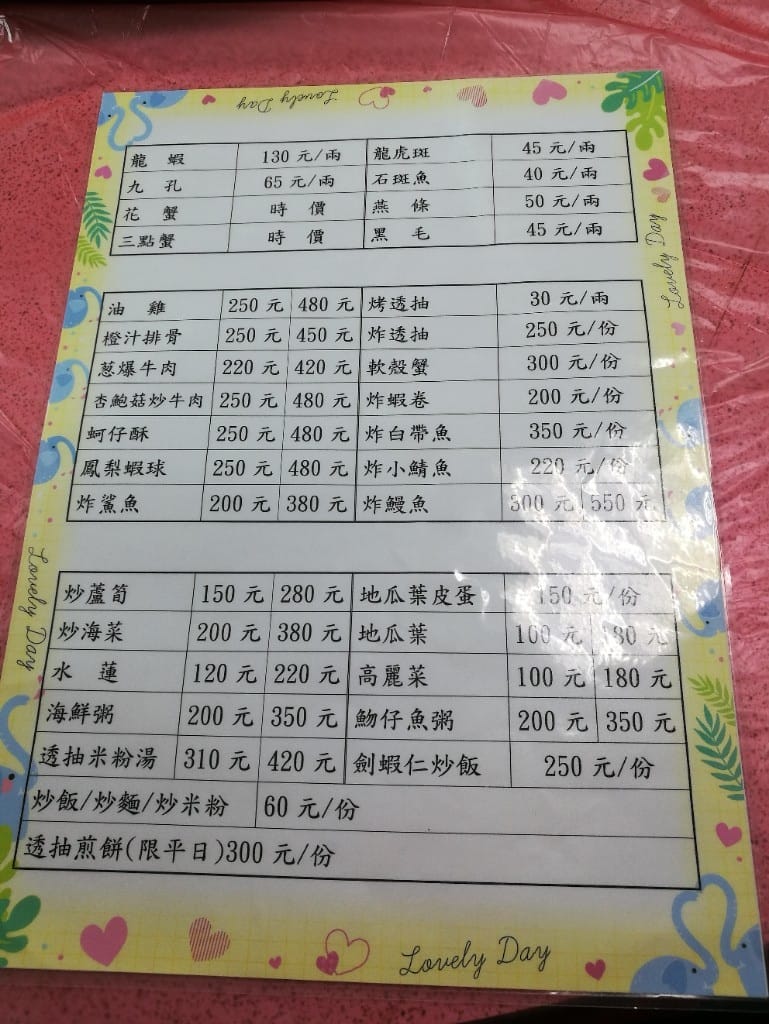 Lovely Day
龍 蝦 130 元/兩 龍虎斑 45 元/兩
九 孔 65 元/兩 石斑魚 40 元/兩
花 蟹 時 價 燕 條 50 元/兩
三點蟹 時 價 黑 毛 45 元/兩
Lovely Day
油 雞 250 元 480 元 烤透抽 30 元/兩
橙汁排骨 250 元 450 元 炸透抽 250 元/份
葱爆牛肉 220 元 420 元 軟殼蟹 300 元/份
杏鮑菇炒牛肉 250 元 480 元 炸蝦卷 200 元/份
蚵仔酥 250 元 480 元 炸白帶魚 350 元/份
鳳梨蝦球 250 元 480 元 炸小鯖魚 220 元/份
炸鯊魚 200 元 380 元 炸鰻魚 300 元 550 元
Lovely Day
炒蘆筍 150 元 280 元 地瓜葉皮蛋 150 元/份
炒海菜 200 元 380 元 地瓜葉 100 元 180 元
水 蓮 120 元 220 元 高麗菜 100 元 180 元
海鮮粥 200 元 350 元 魩仔魚粥 200 元 350 元
透抽米粉湯 310 元 420 元 劍蝦仁炒飯 250 元/份
炒飯/炒麵/炒米粉 60 元/份
透抽煎餅(限平日)300 元/份
Lovely Day